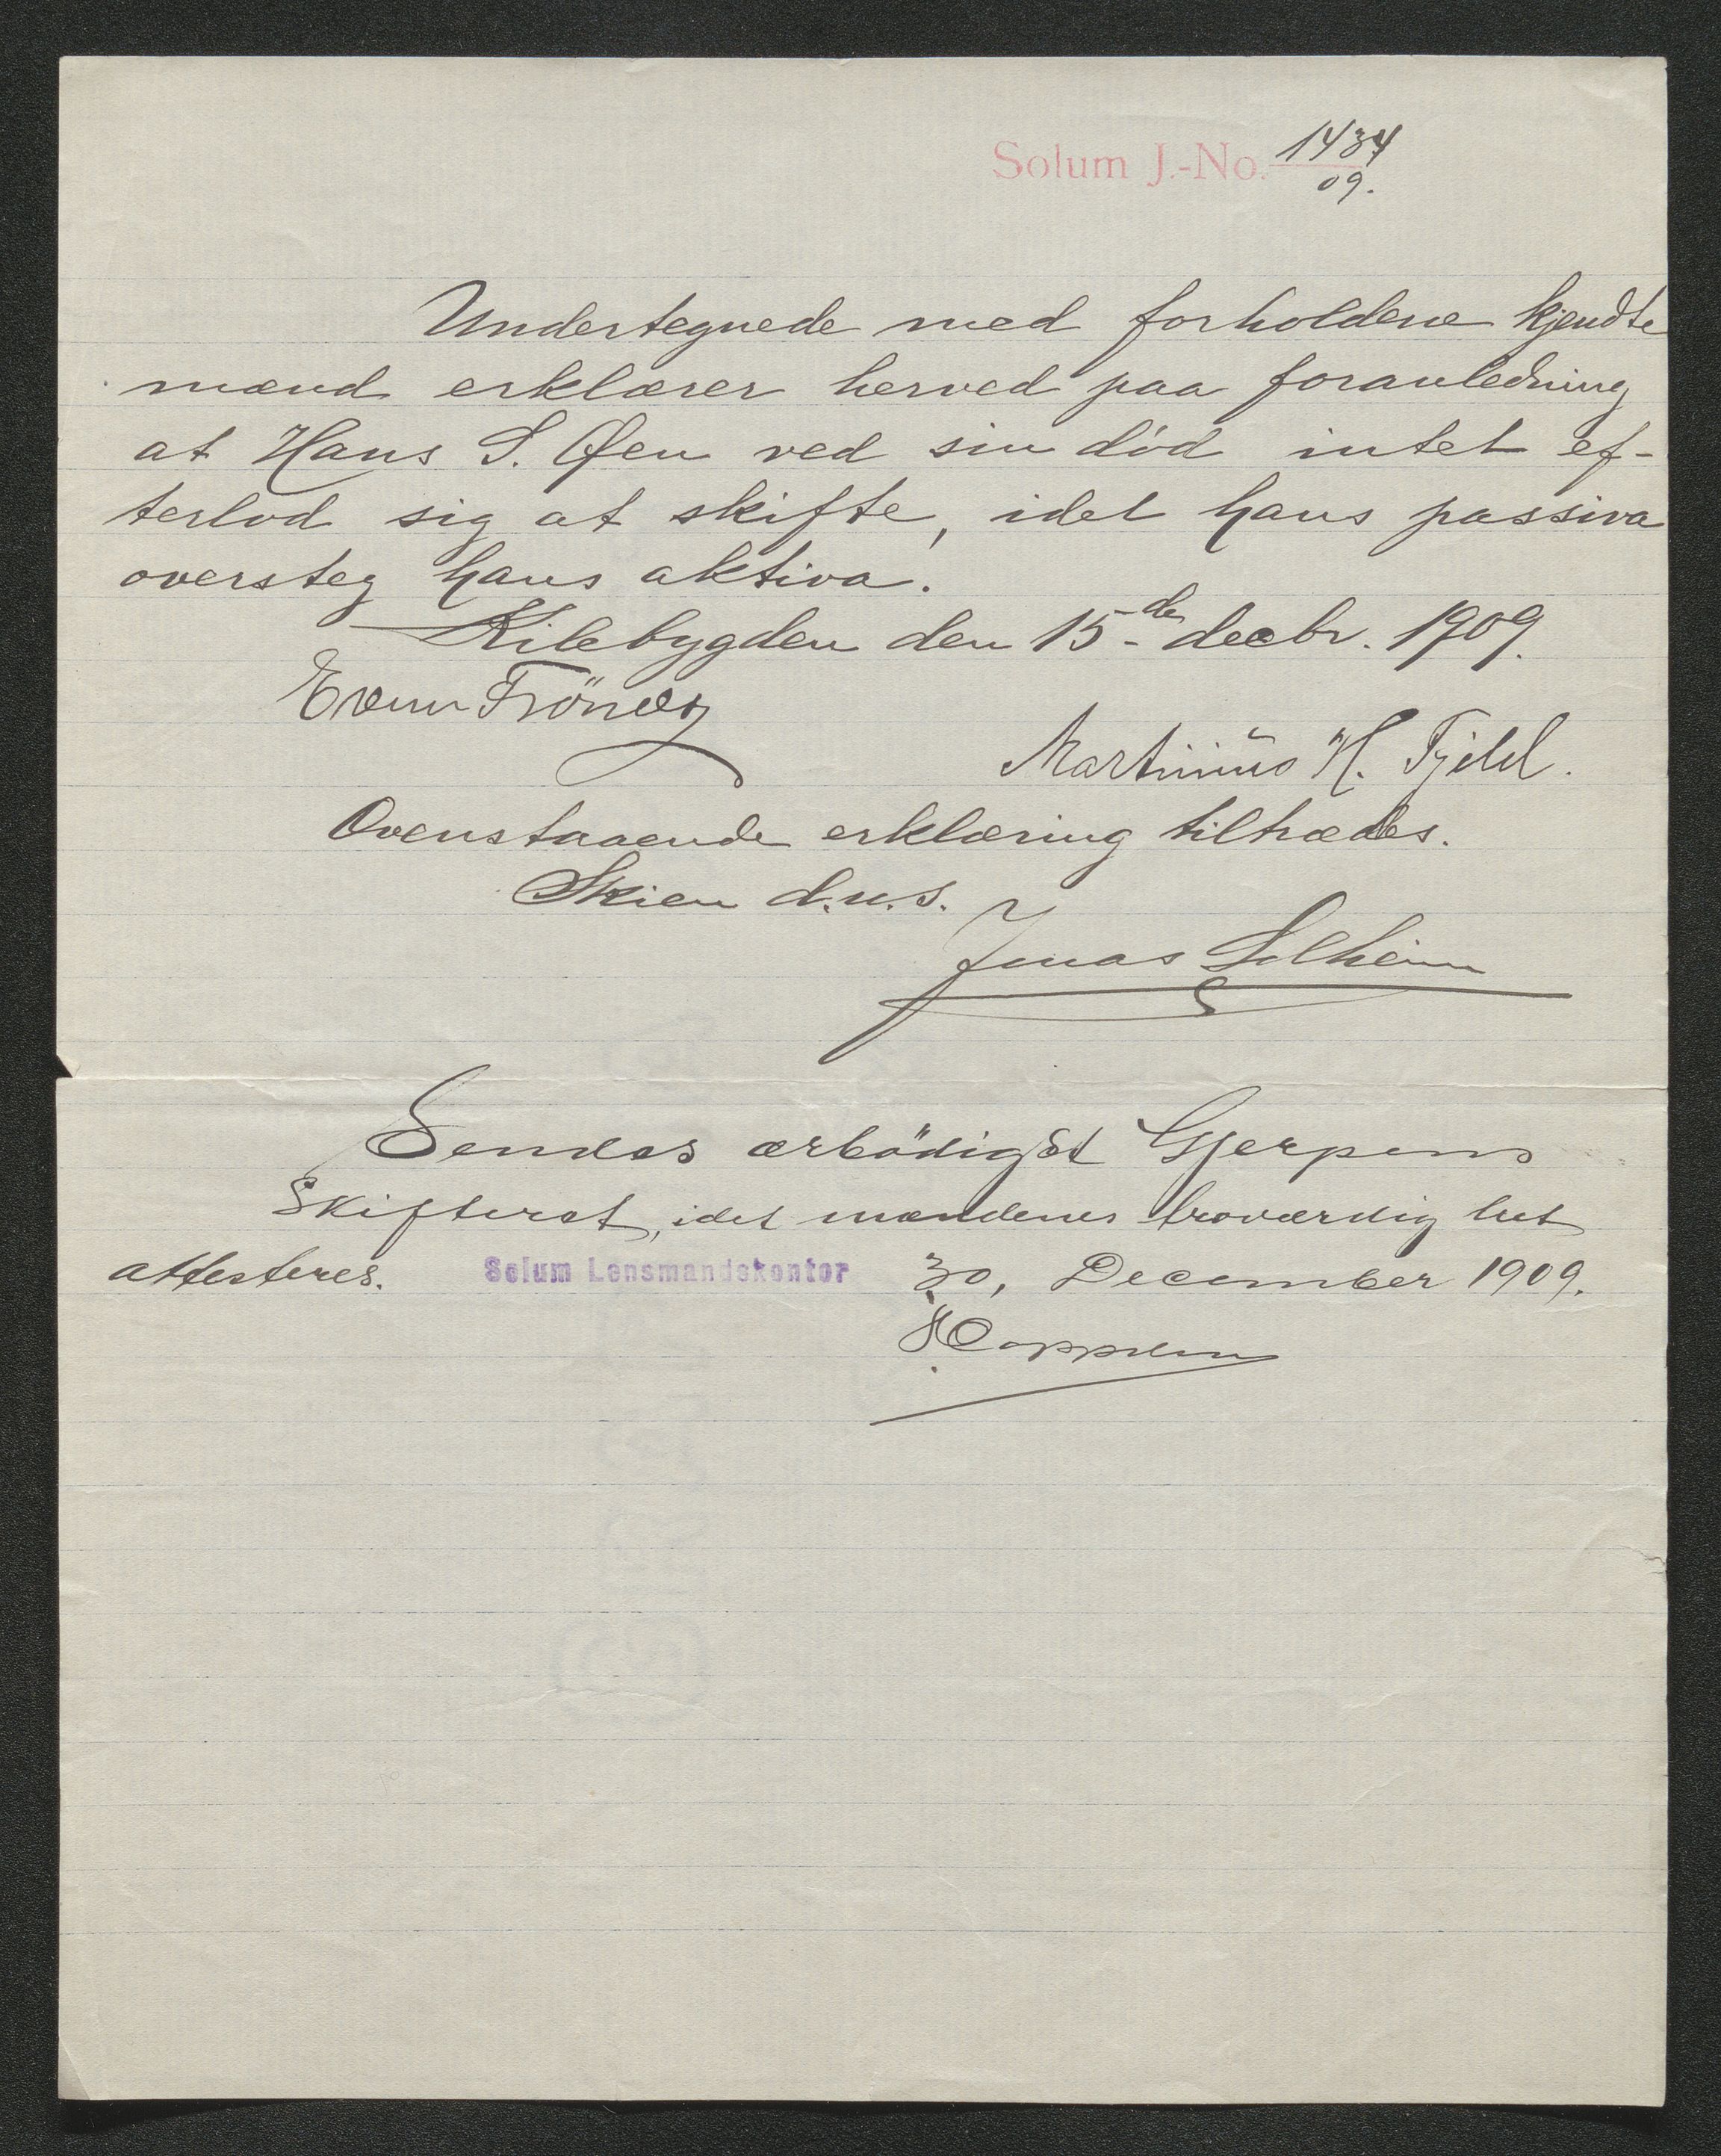 Solum J.-No. 1434
09.
Undertegnede med forholdene kjendte
mænd erklærer herved paa foranledning
at Hans S. Øen ved sin död intet ef-
terlod sig at skifte, idet hans passiva
oversteg hans aktiva.
Kilebygden den 15-de decbr. 1909.
Martinius H. Fjeld.
Ovenstaaende erklæring tiltrædes.
Skien d.u.s.
Jonas Solheim
Sendes ærbödigst Gjerpens
Skifteret, idet mændenes troværdighet
attesteres. Solum Lensmandskontor 30, December 1909.